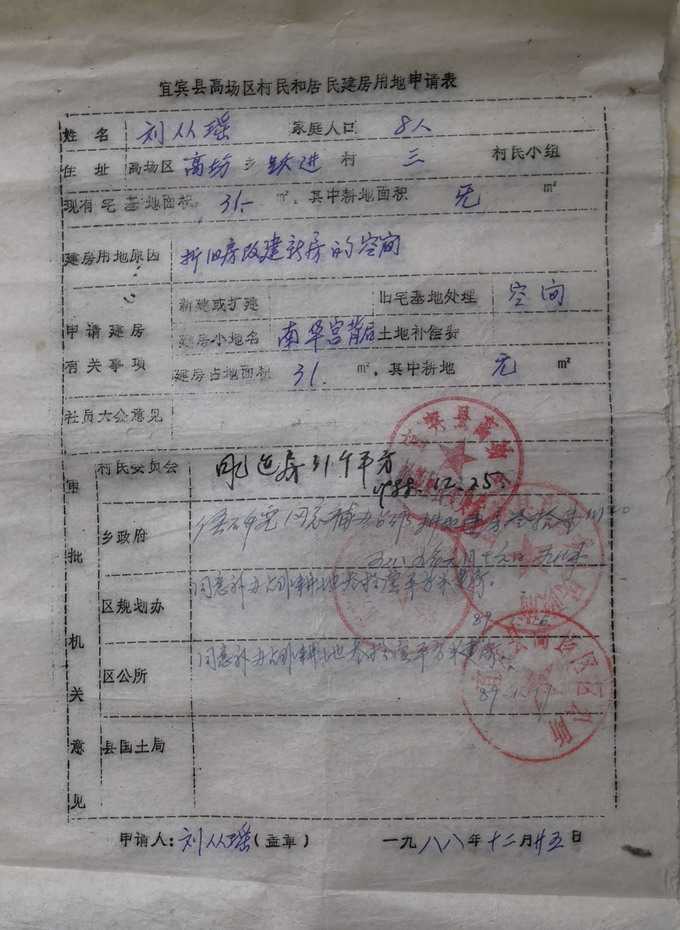 宜宾县高场区村民和居民建房用地申请表
姓名 刘从瑶 家庭人口 8人
住址 高场区 高场 乡 跃进 村 三 村民小组
现有宅基地面积 31. m²，其中耕地面积 无 m²
建房用地原因 拆旧房改建新房的空间
申请建房有关事项
新建或扩建 旧宅基地处理 空间
建房小地名 南华宫背后 土地补偿费
建房占地面积 31. m²，其中耕地 无 m²
社员大会意见
审批机关意见
村民委员会 建房31个平方
1988.12.25
乡政府 同意补办
区规划办 同意补办占非耕地叁拾壹平方米建房。
89
区公所 同意补办占非耕地叁拾壹平方米建房。
89.12.
县国土局
申请人：刘从瑶（盖章） 一九八八年十二月廿五日